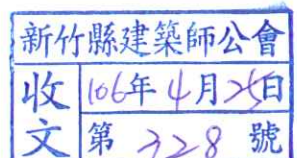 新竹縣建築師公會
收文
106年4月25日
第328號